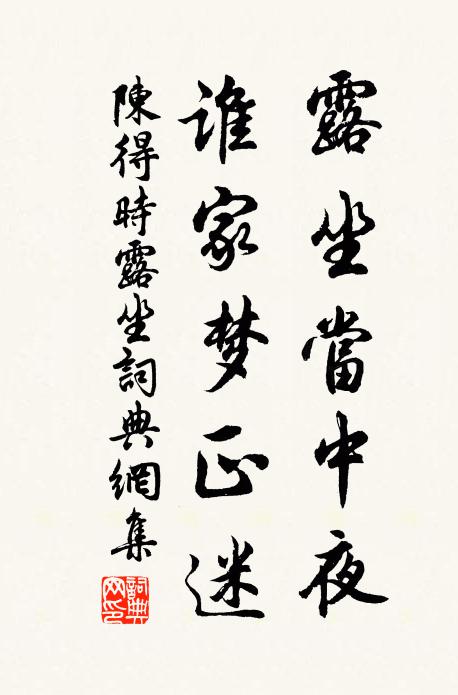 露坐當中夜
誰家梦正迷
陳得時露坐詞典網集
詞典网印